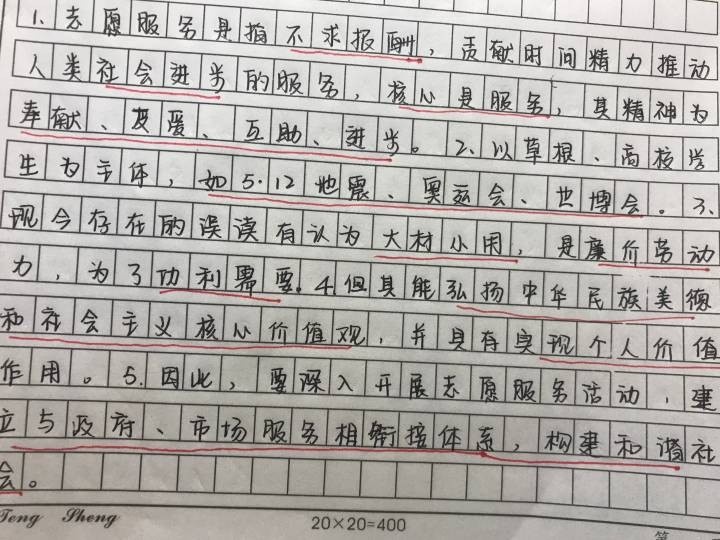 1.志愿服务是指不求报酬，贡献时间精力推动
人类社会进步的服务，核心是服务，其精神为
奉献、友爱、互助、进步。2.以草根、高校学
生为主体，如5.12地震、奥运会、世博会。3.
现今存在的误读有认为大材小用，是廉价劳动
力，为了功利需要。4.但其能弘扬中华民族美德
和社会主义核心价值观，并具有实现个人价值
作用。5.因此，要深入开展志愿服务活动，建
立与政府、市场服务相衔接体系，构建和谐社
会。
Teng Sheng
20×20=400
第